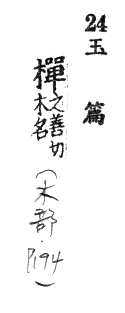 24
玉篇
樿之善切
木名
(木部.P194)